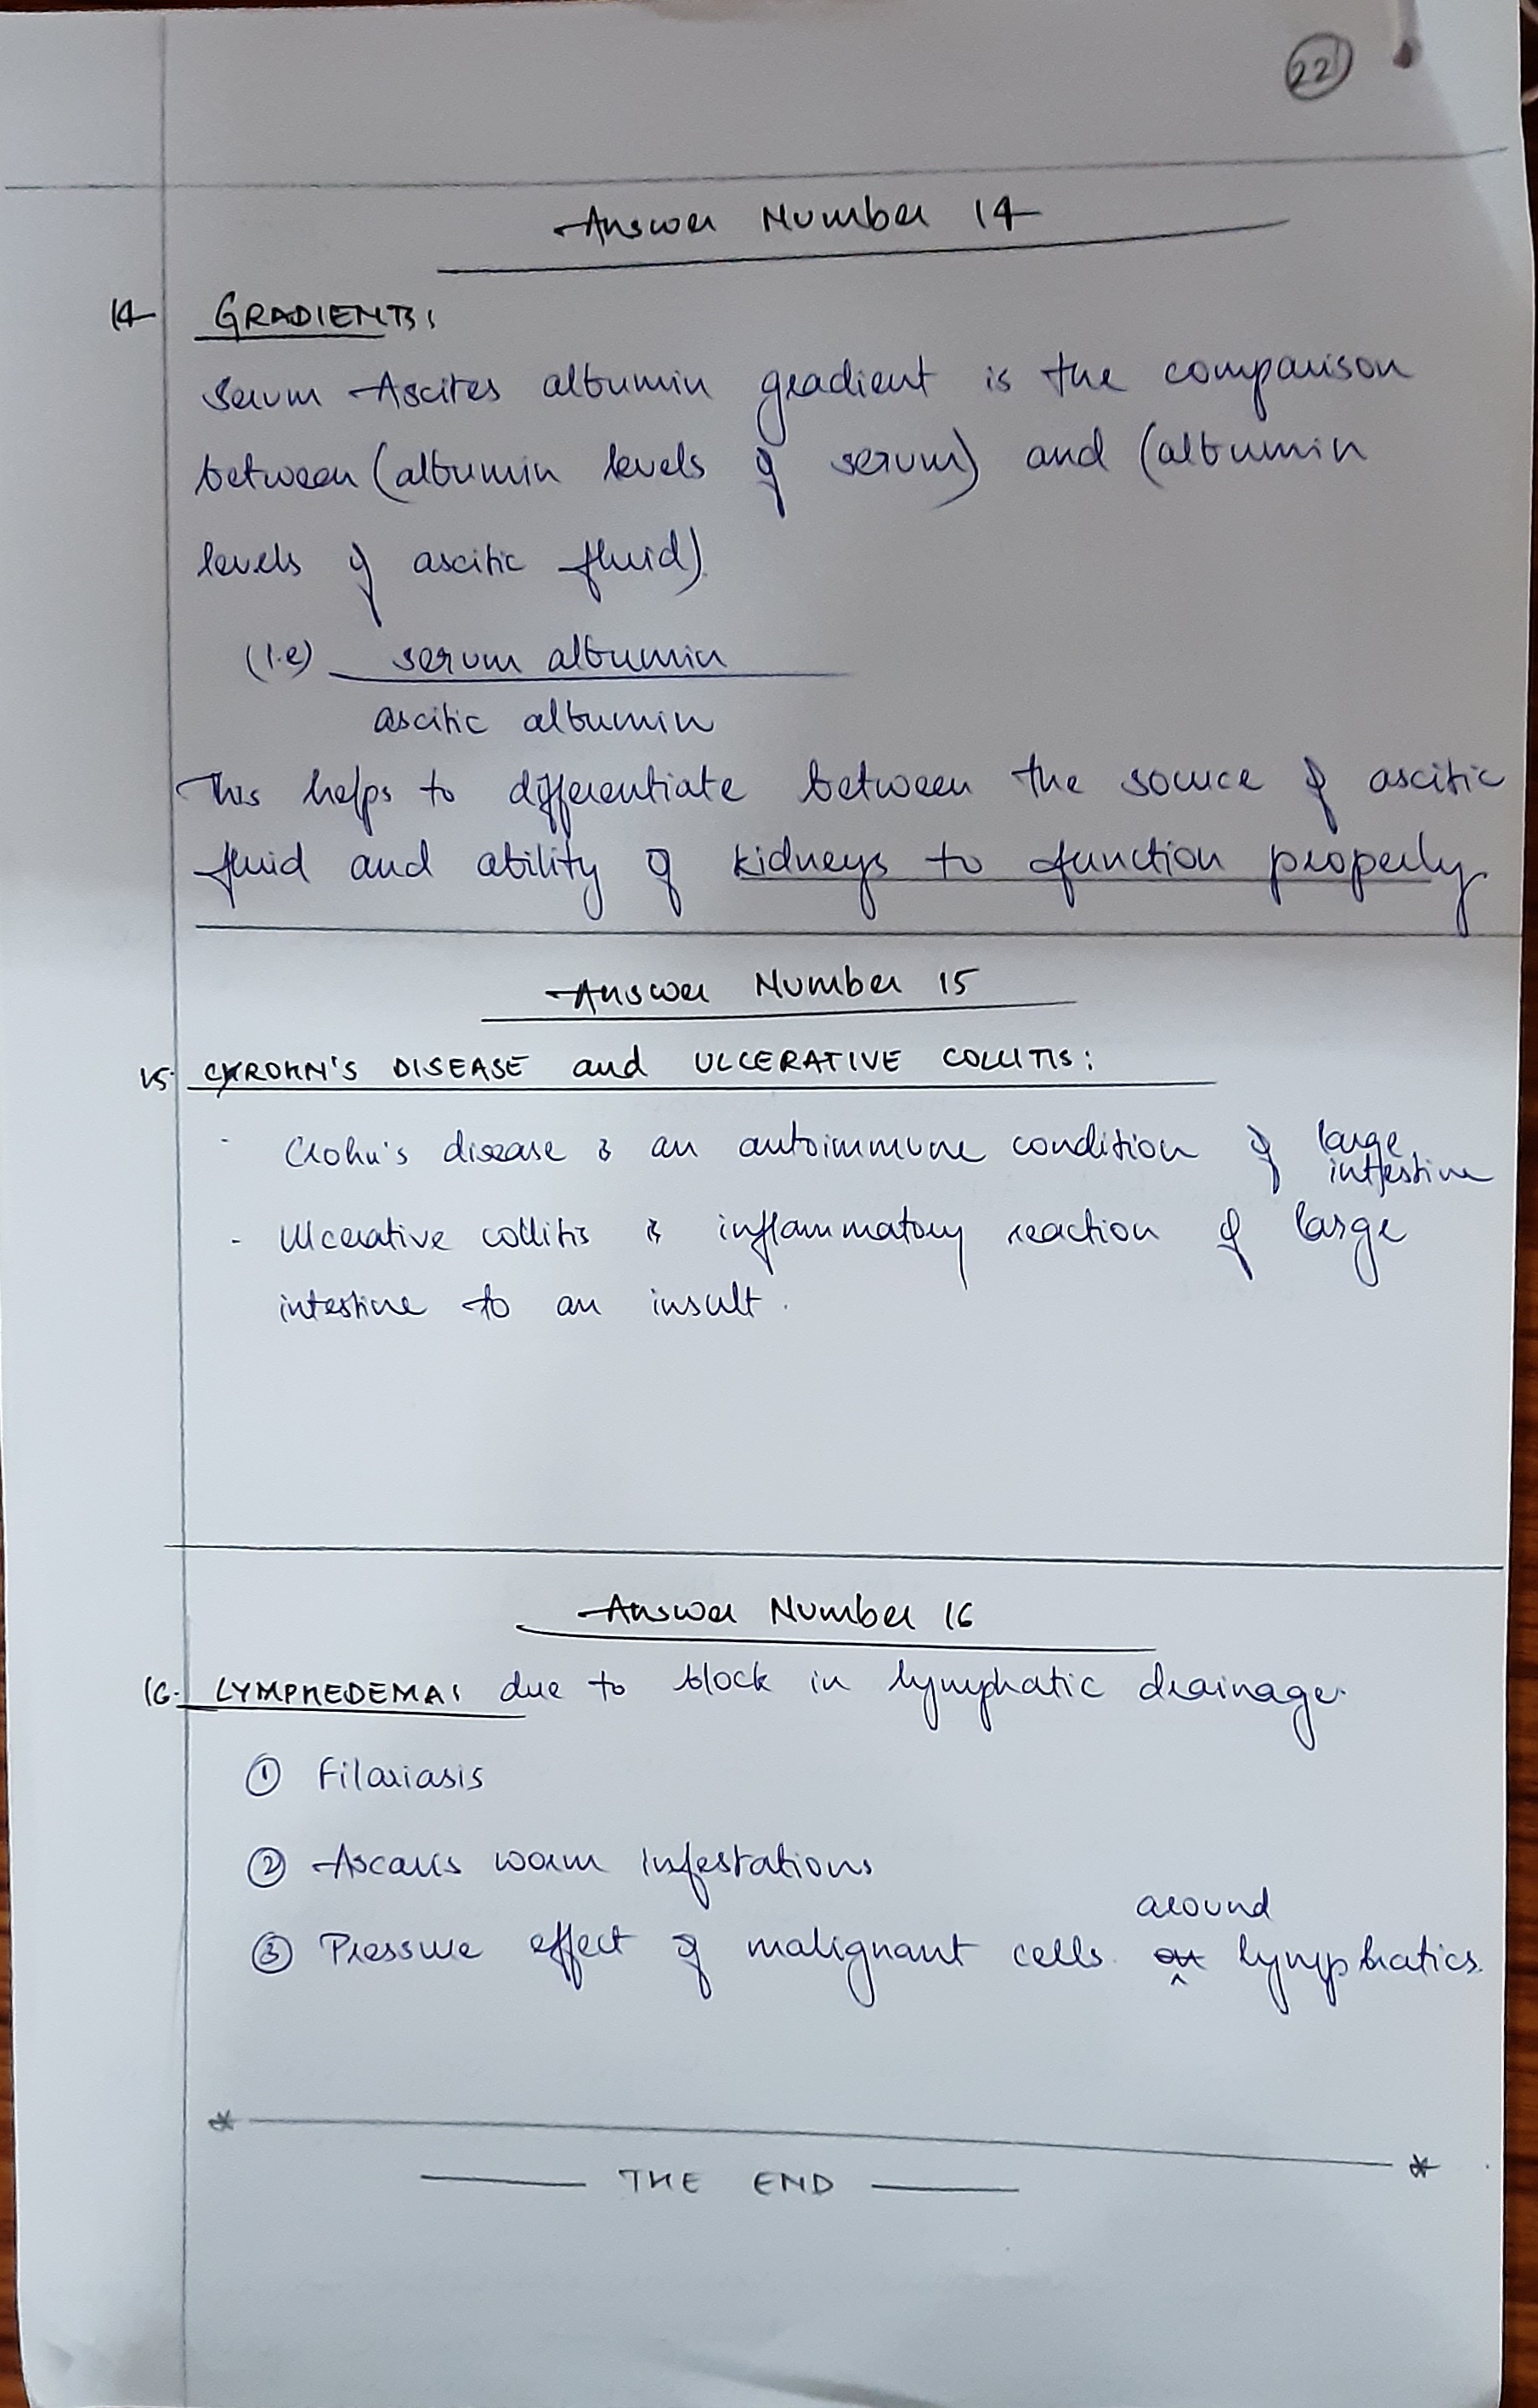 22
Answer Number 14
14 GRADIENTS:
Serum Ascites albumin gradient is the comparison
between (albumin levels of serum) and (albumin
levels of ascitic fluid).
(i.e) serum albumin
ascitic albumin
This helps to differentiate between the source of ascitic
fluid and ability of kidneys to function properly
Answer Number 15
15. CROHN'S DISEASE and ULCERATIVE COLLITIS:
- Crohn's disease is an autoimmune condition of large
intestine
- Ulcerative collitis is inflammatory reaction of large
intestine to an insult.
Answer Number 16
16. LYMPHEDEMA: due to block in lymphatic drainage.
① Filariasis
② Ascaris worm infestations
around
③ Pressure effect of malignant cells lymphatics.
THE END